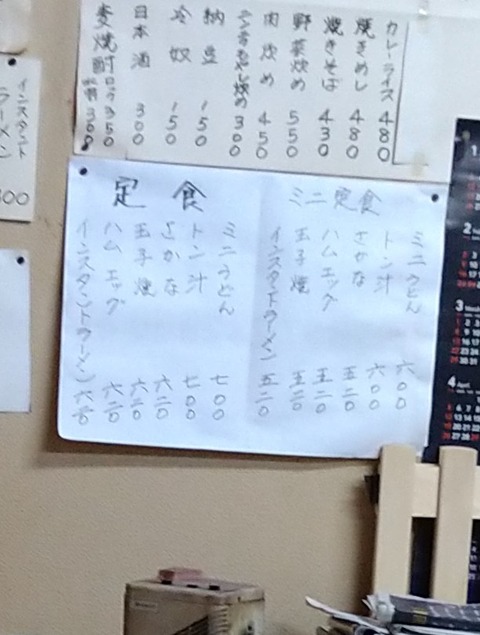 カレーライス 480
焼きめし 480
焼きそば 430
野菜炒め 550
肉炒め 450
300
納豆 150
冷奴 150
日本酒 300
麦焼酎 ロック350
300
ミニ定食
ミニうどん 六〇〇
トン汁 六〇〇
さかな 五二〇
ハムエッグ 五二〇
玉子焼 五二〇
インスタントラーメン 五二〇
定食
ミニうどん 七〇〇
トン汁 七〇〇
さかな 六二〇
玉子焼 六二〇
ハムエッグ 六二〇
インスタントラーメン 六二〇
インスタント
ラーメン
00
1
2
3
4 April